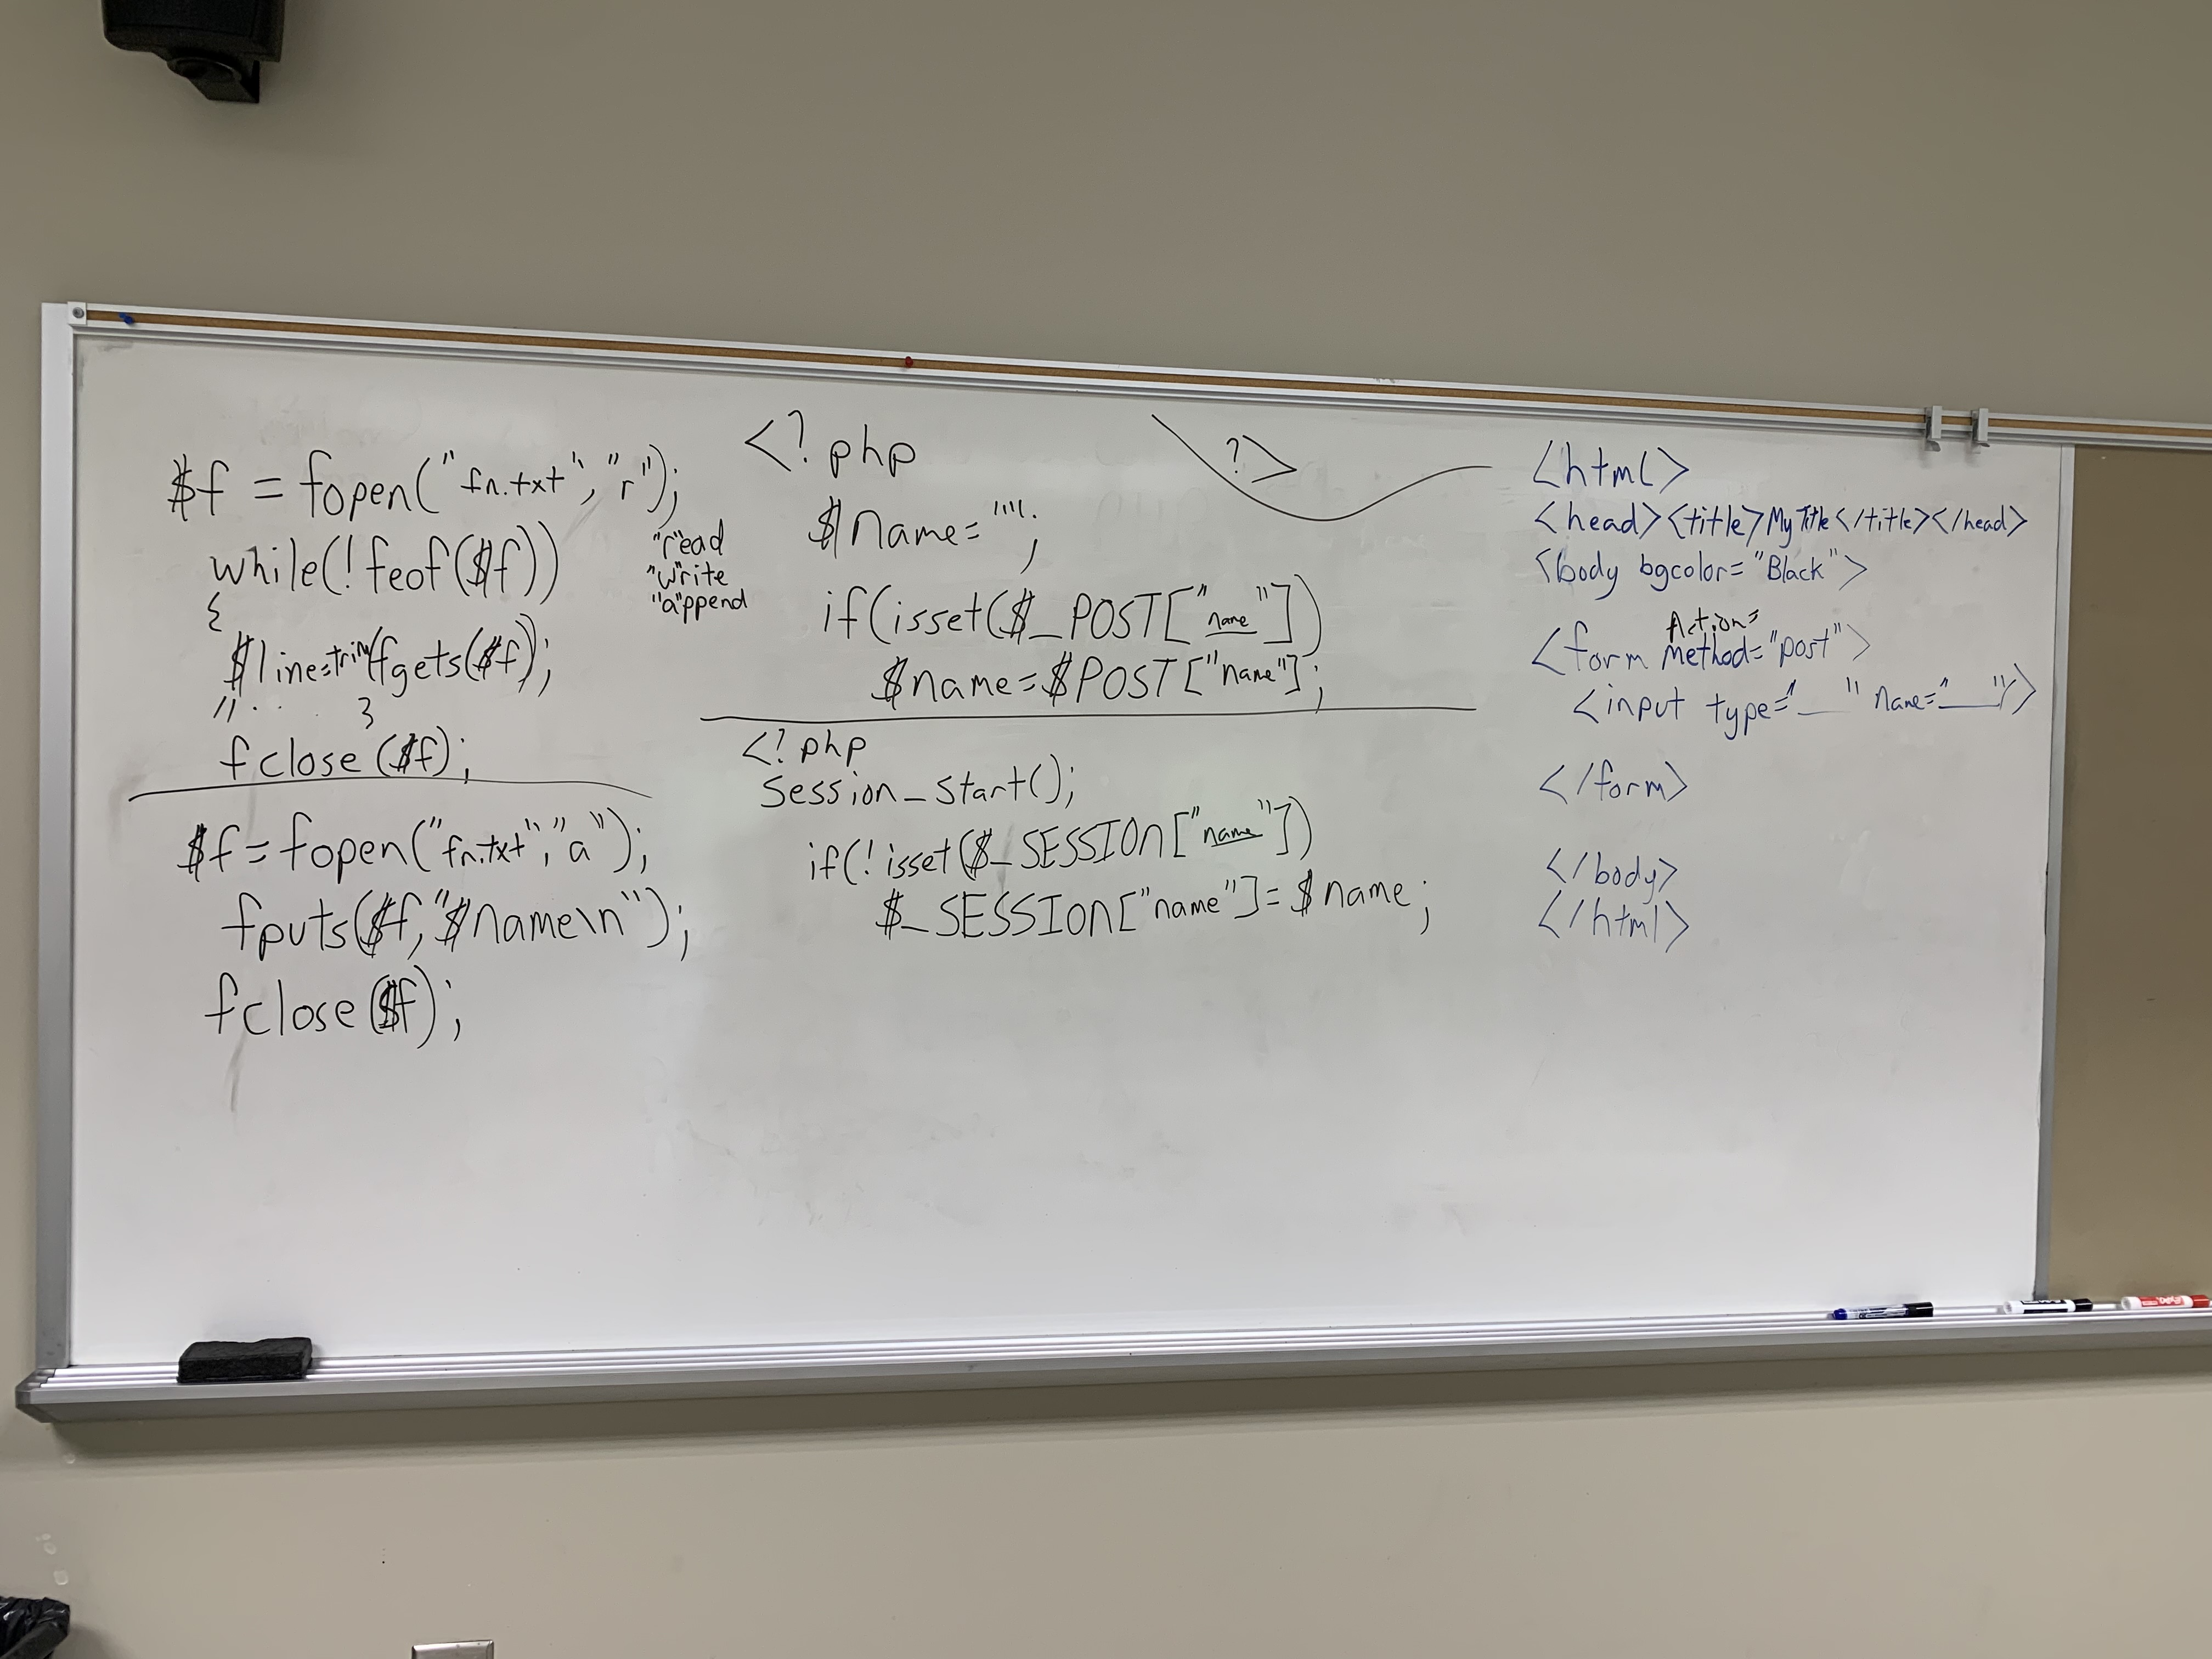 $f = fopen("fn.txt", "r");
while(!feof($f))
{
$line=trim(fgets($f);
// . . . }
fclose($f);
"r"ead
"w"rite
"a"ppend
$f=fopen("fn.txt","a");
fputs($f,"$name\n");
fclose($f);
<?php
$name="";
if(isset($_POST["name"])
$name=$POST["name"];
?>
<?php
Session_start();
if(!isset($_SESSION["name"])
$_SESSION["name"]=$name;
<html>
<head><title>My Title</title></head>
<body bgcolor="Black">
Action=
<form Method="post">
<input type="__" name="__"/>
</form>
</body>
</html>